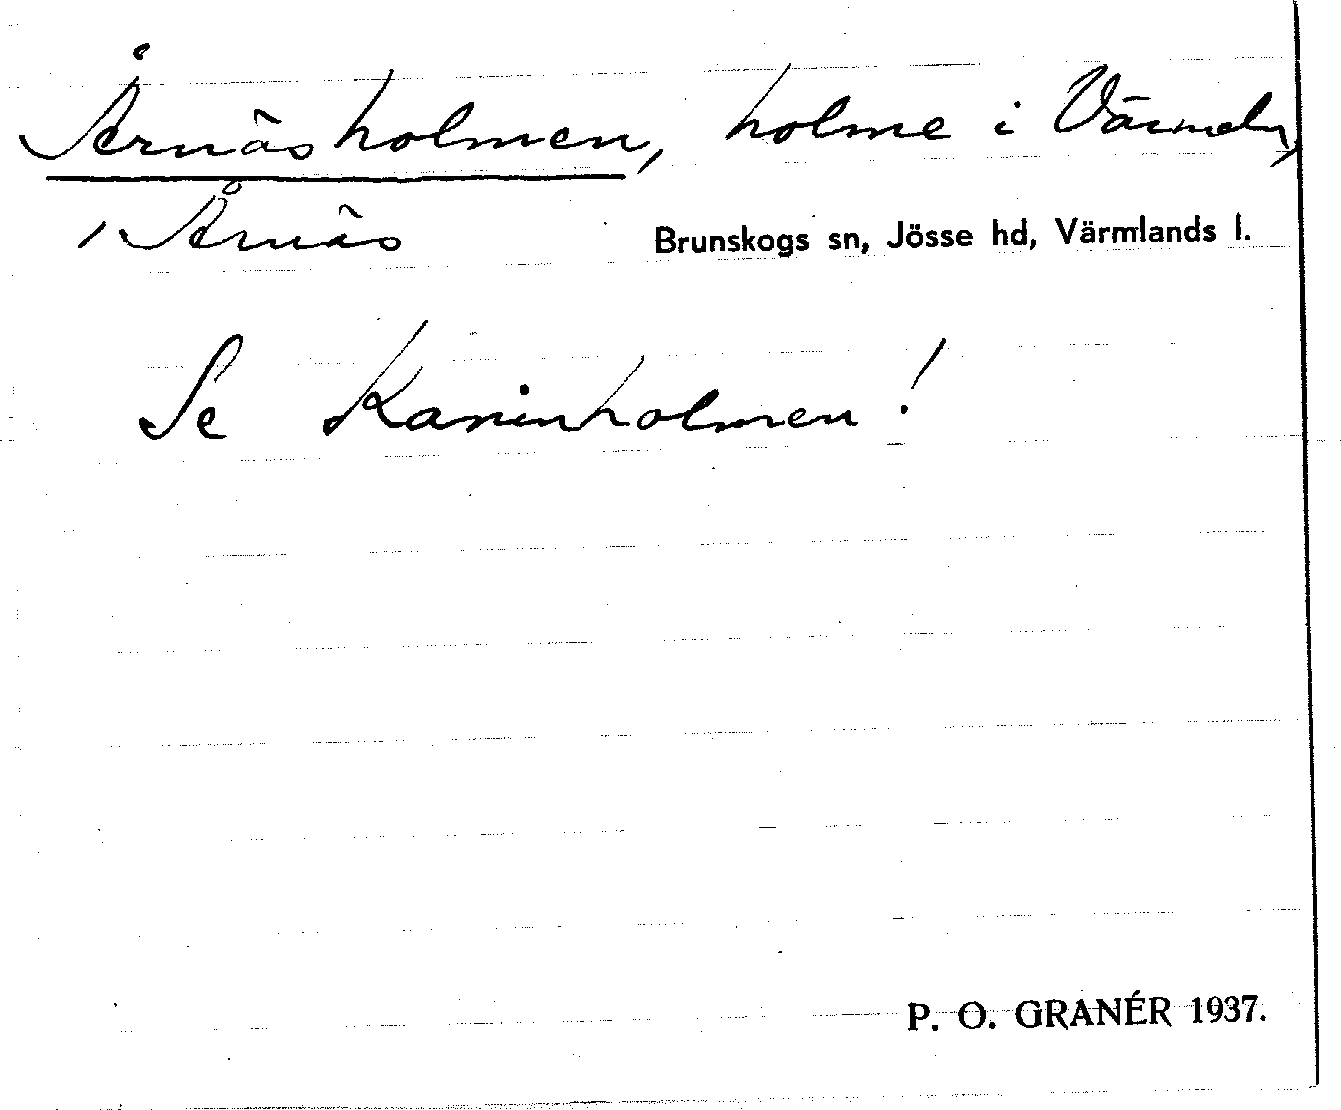 Årnäsholmen, holme i Värmeln,
i Årnäs Brunskogs sn, Jösse hd, Värmlands l.
Se Kaninholmen!
P. O. GRANÉR 1937.